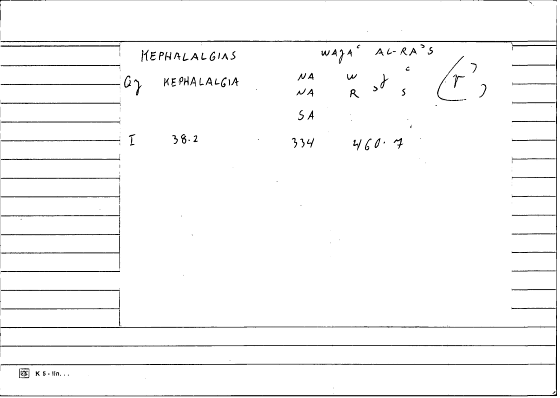 KEPHALALGIAS WAJAʿ AL-RAʾS
Gj KEPHALALGIA NA W j ʿ
NA R ʾ S
SA
I 38.2 334 460.7
K 5 - lin...